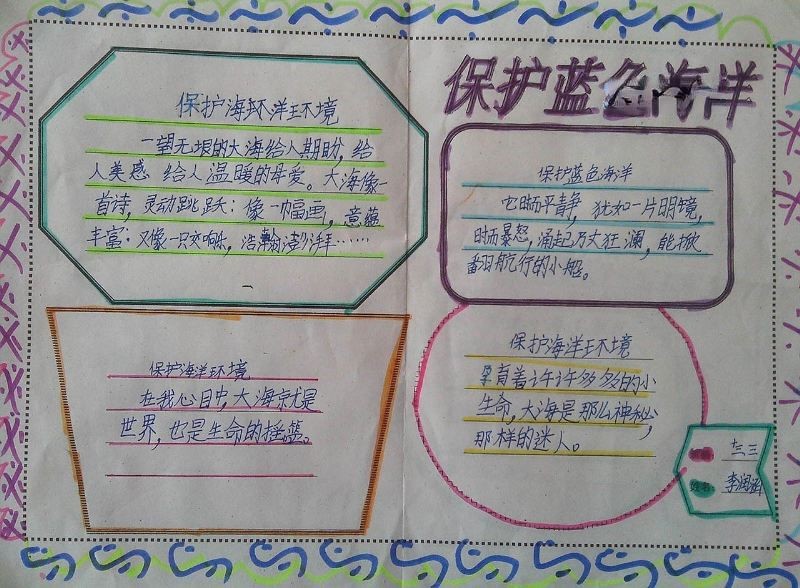 保护蓝色海洋
保护海环洋环境
一望无垠的大海给人期盼，给
人美感 给人温暖的母爱。大海像一
首诗，灵动跳跃：像一幅画，意蕴
丰富：又像一只交响乐，浩瀚澎湃……
保护蓝色海洋
它时而平静，犹如一片明镜，
时而暴怒，涌起万丈狂澜，能掀
翻航行的小船。
保护海洋环境
在我心目中，大海就是
世界，也是生命的摇篮。
保护海洋环境
孕育着许许多多的小
生命，大海是那么神秘，
那样的迷人。
姓名